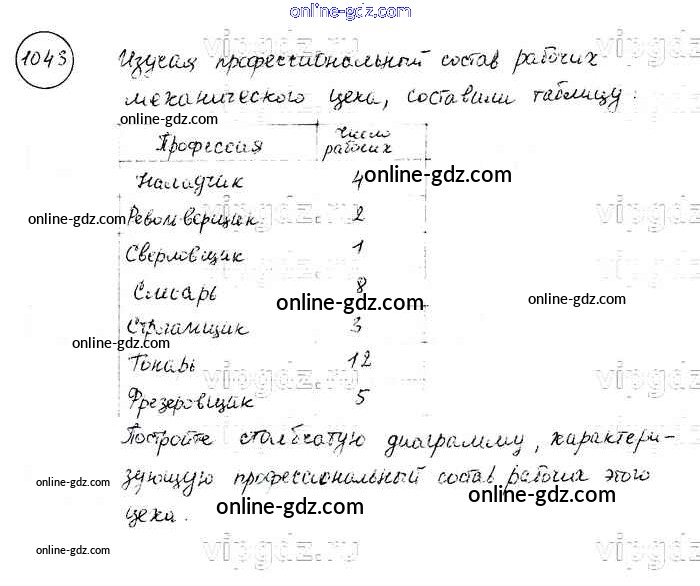 online-gdz.com
1043 Изучая профессиональный состав рабочих
vipgdz.ru vipgdz.ru
механического цеха, составили таблицу:
online-gdz.com
Профессия Число рабочих
Наладчик 4 online-gdz.com
online-gdz.com Револьверщик 2
vipgdz.ru vipgdz.ru
Сверловщик 1
Слесарь 8
online-gdz.com online-gdz.com
Строгальщик 3
online-gdz.com
Токарь 12
vipgdz.ru vipgdz.ru
Фрезеровщик 5
Постройте столбчатую диаграмму, характери-
зующую профессиональный состав рабочих этого
online-gdz.com online-gdz.com online-gdz.com
цеха.
online-gdz.com vipgdz.ru vipgdz.ru